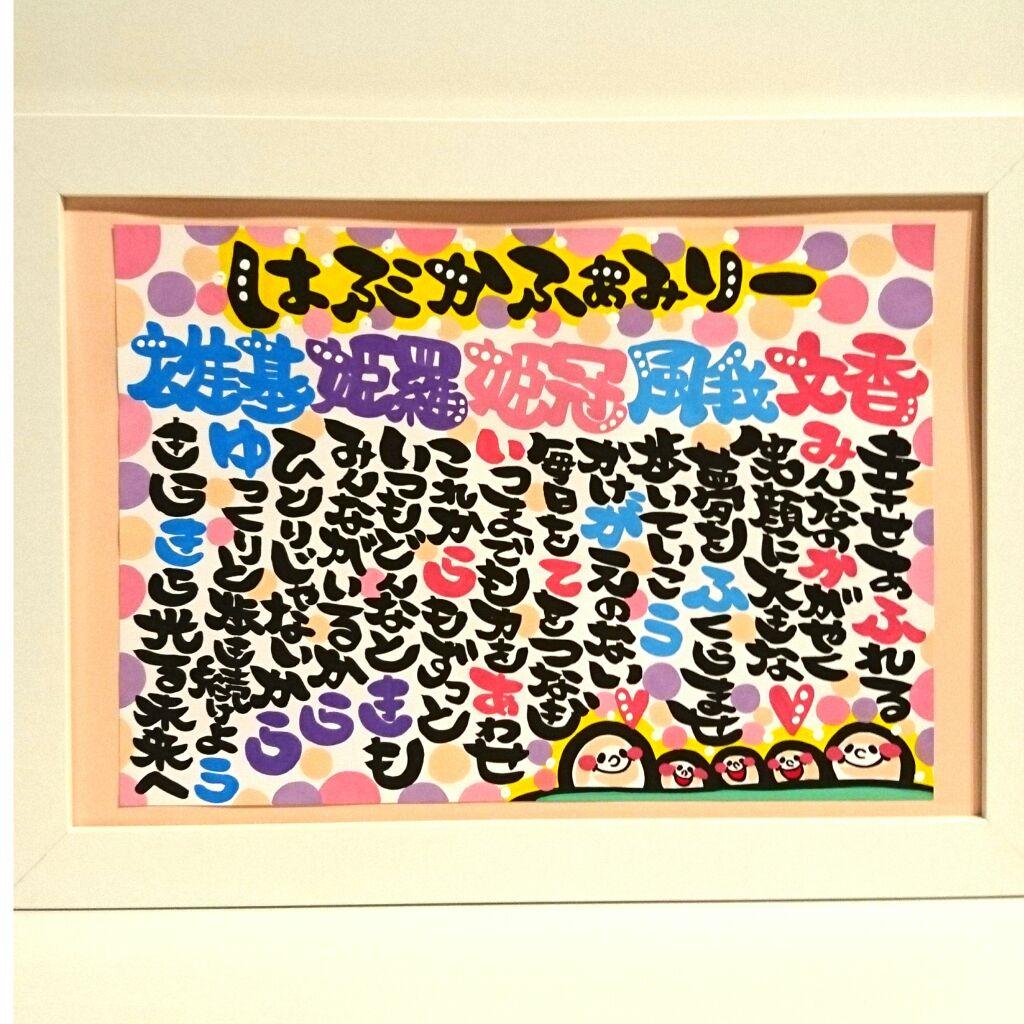 はぶかふぁみりー
文香 風我 姫冠 姫羅 雄基
幸せあふれる
みんなのかがやく
笑顔に大きな
夢をふくらませ
歩いていこう
かけがえのない
毎日をてをつなぎ
いつまでも力をあわせ
これからもずっと
いつもどんなときも
みんながいるから
ひとりじゃないから
ゆっくりと歩き続けよう
きらきら光る未来へ